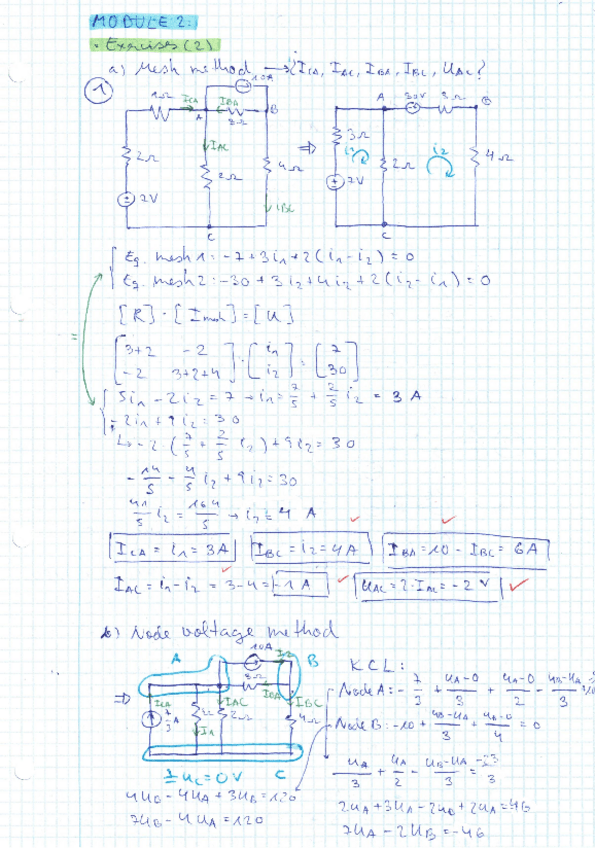 MODULE 2:
• Exercises (2)
a) Mesh method → ¿ICA, IAC, IBA, IBC, UAC?
1
1Ω ICA A IBA 10A B
3Ω
2Ω IAC 2Ω 4Ω
7V IBC
C
⇒
A 30V 3Ω B
3Ω i1 2Ω i2 4Ω
7V
C
Eq. mesh 1: -7 + 3i1 + 2(i1 - i2) = 0
Eq. mesh 2: -30 + 3i2 + 4i2 + 2(i2 - i1) = 0
[R] · [Imesh] = [U]
[3+2 -2] · [i1] = [7]
[-2 3+2+4] [i2] [30]
5i1 - 2i2 = 7 → i1 = 7/5 + 2/5 i2 = 3 A
-2i1 + 9i2 = 30
↳ -2·(7/5 + 2/5 i2) + 9i2 = 30
-14/5 - 4/5 i2 + 9i2 = 30
41/5 i2 = 164/5 → i2 = 4 A
ICA = i1 = 3A IBC = i2 = 4A IBA = 10 - IBC = 6A
IAC = i1 - i2 = 3 - 4 = -1 A UAC = 2·IAC = -2 V
b) Node voltage method
⇒
A 10A B
3Ω IBA
ICA IAC IBC
7/3 A 3Ω 2Ω 4Ω
I1
UC = 0V C
KCL:
Node A: -7/3 + (UA-0)/3 + (UA-0)/2 - (UB-UA)/3
Node B: -10 + (UB-UA)/3 + (UB-0)/4 = 0
UA/3 + UA/2 - (UB-UA)/3 = -23/3
4UB - 4UA + 3UB = 120
2UA + 3UA - 2UB + 2UA = -46
7UB - 4UA = 120
7UA - 2UB = -46